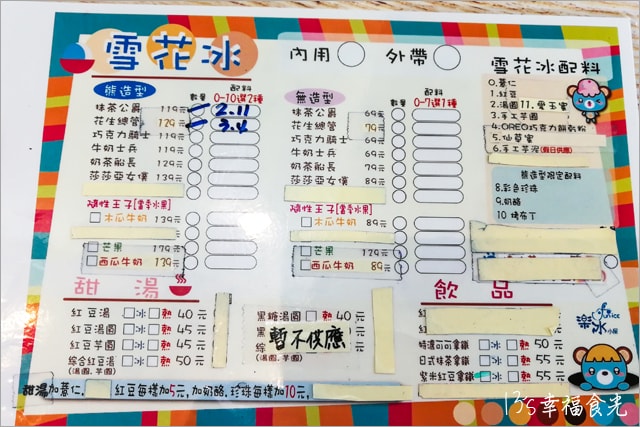 雪花冰
內用 外帶
熊造型 數量 配料 0-10選2種
抹茶公爵 119元 2.11
花生總管 129元 3.4
巧克力騎士 119元
牛奶士兵 119元
奶茶船長 119元
莎莎亞女僕 139元
隨性王子[當季水果]
木瓜牛奶 139元
芒果 179元
西瓜牛奶 139元
無造型 數量 配料 0-7選1種
抹茶公爵 69元
花生總管 79元
巧克力騎士 69元
牛奶士兵 69元
奶茶船長 69元
莎莎亞女僕 89元
隨性王子[當季水果]
木瓜牛奶 89元
芒果 129元
西瓜牛奶 89元
雪花冰配料
0.薏仁
1.紅豆
2.湯圓 11.愛玉蜜
3.手工芋圓
4.OREO巧克力餅乾粉
5.仙草蜜
6.手工芋泥(假日供應)
熊造型限定配料
8.彩色珍珠
9.奶酪
10.烤布丁
甜湯
紅豆湯 冰 熱 40元
紅豆湯圓 冰 熱 45元
紅豆芋圓 冰 熱 45元
綜合紅豆湯 冰 熱 50元
(湯圓.芋圓)
黑糖湯圓 熱 40元
黑
綜
(湯圓.芋圓)
暫不供應
飲品
特濃可可拿鐵 冰 熱 50元
日式抹茶拿鐵 冰 熱 55元
紫米紅豆拿鐵 冰 熱 55元
樂冰 ICE
小屋
甜湯加薏仁. 紅豆每樣加5元, 加奶酪.珍珠每樣加10元,
135幸福食光